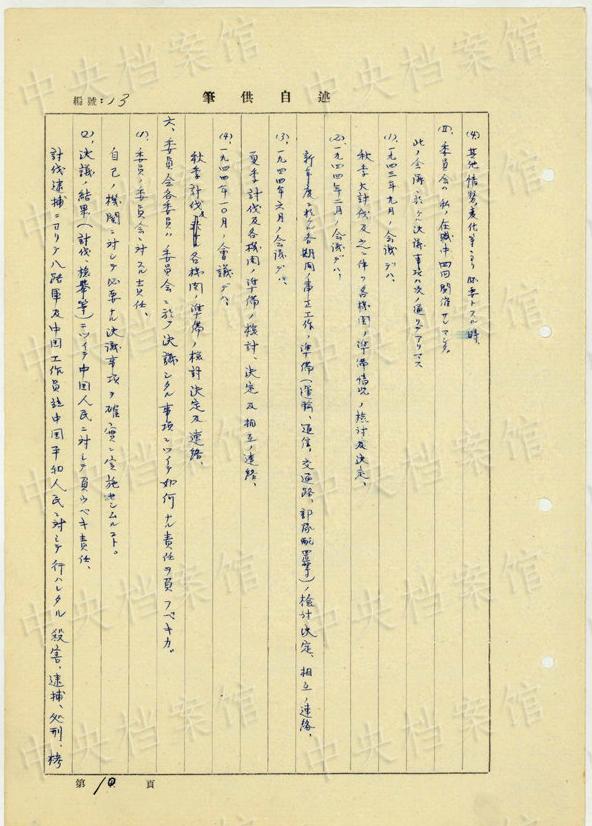 筆供自述
編號:13
(4)其他情勢ノ変化等ニヨリ必要トスル時、
(5)委員会ハ私ノ在職中四回開催サレマシタ。
此ノ会議ニ於ケル決議事項ハ次ノ通リデアリマス
(1)、一九四三年九月ノ会議デハ、
秋季大討伐及之ニ伴フ各機関ノ準備情況ノ検討及決定、
(2)一九四四年二月ノ会議デハ、
新年度ニ於ケル春期間ノ工作ノ準備(運輸、通信、交通路、部隊配置等)ノ検討決定、相互ノ連絡、
(3)、一九四四年六月ノ会議デハ、
夏季討伐及各機関ノ準備ノ検討、決定及相互ノ連絡、
(4)、一九四四年一〇月ノ会議デハ、
秋季討伐各機関ノ準備ノ検討決定及連絡、
六、委員会各委員ハ委員会ニ於テ決議シタル事項ニツイテ如何ナル責任ヲ負フベキカ。
(1)、委員ノ委員会ニ対スル責任、
自己ノ機関ニ対シテ必要ナル決議事項ヲ確実ニ実施セシムルコト。
(2)、決議ノ結果(討伐、検挙等)ニツイテ中国人民ニ対シテ負フベキ責任、
討伐逮捕ニヨリテ八路軍及中国工作員並中国平和人民ニ対シテ行ハレタル殺害、逮捕、処刑、拷
第10頁
中央档案馆